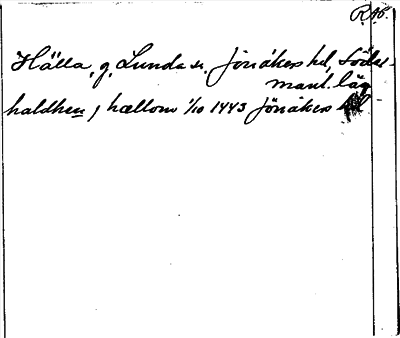 RAP.
Hälla, g. Lunda sn. Jönåkers hd, Söder-
manl. län
haldhen, hællom 1/10 1443 Jönåkers hd